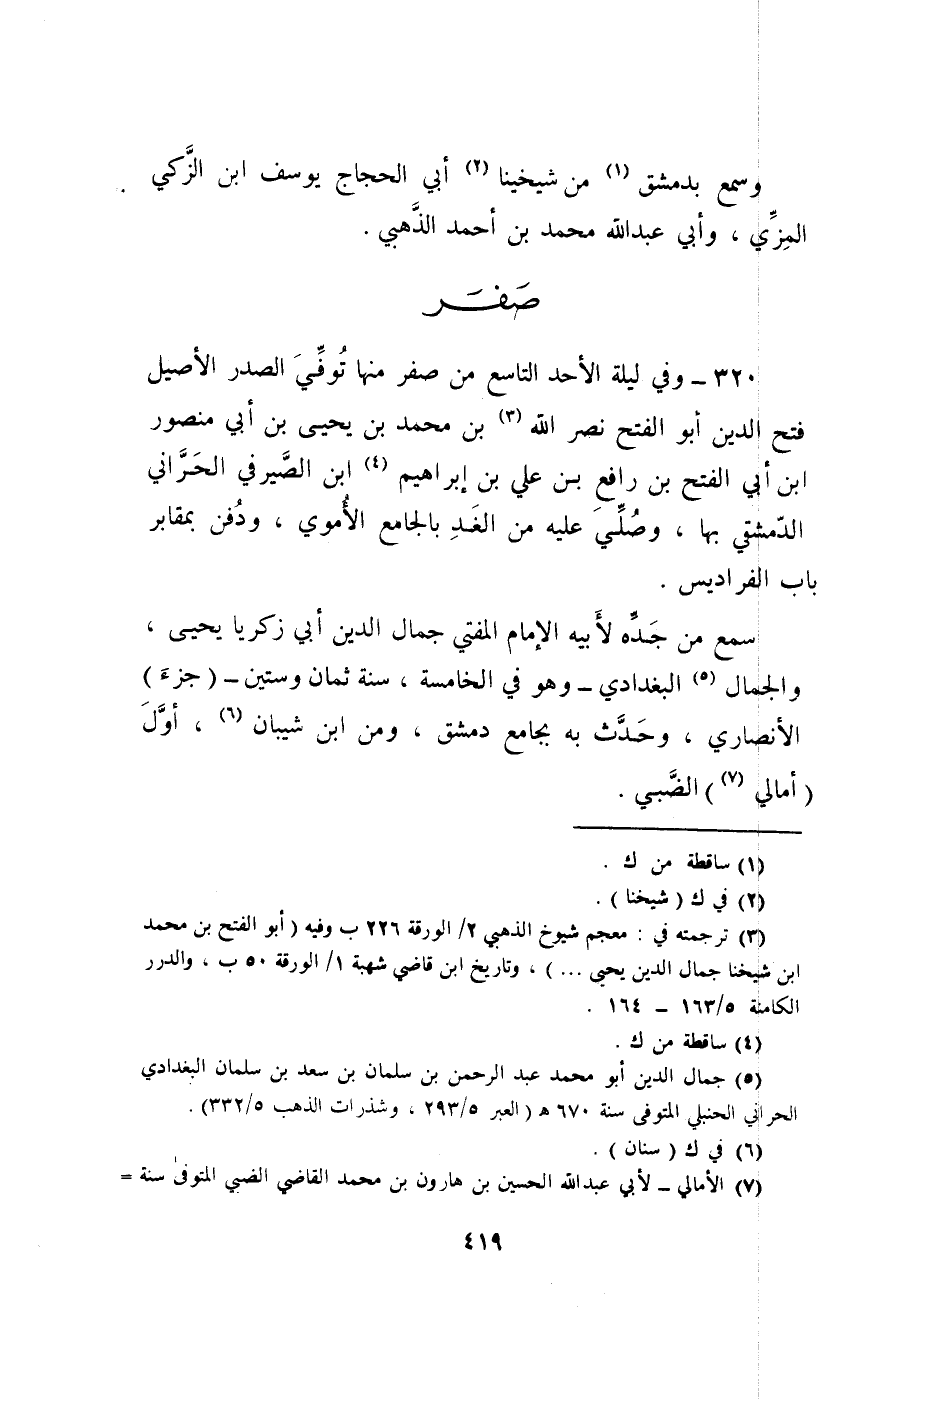 وسمع بدمشق (١) من شيخينا (٢) أبي الحجاج يوسف ابن الزَّكي
المِزِّي ، وأبي عبدالله محمد بن أحمد الذَّهبي .
صَفَر
٣٢٠ – وفي ليلة الأحد التاسع من صفر منها تُوفِّيَ الصدر الأصيل
فتح الدين أبو الفتح نصر الله (٣) بن محمد بن يحيى بن أبي منصور
ابن أبي الفتح بن رافع بن علي بن إبراهيم (٤) ابن الصَّيرفي الحَرَّاني
الدّمشقي بها ، وصُلِّيَ عليه من الغَدِ بالجامع الأُموي ، ودُفن بمقابر
باب الفراديس .
سمع من جَدِّه لأَبيه الإمام المفتي جمال الدين أبي زكريا يحيى ،
والجمال (٥) البغدادي – وهو في الخامسة ، سنة ثمان وستين – ( جزءَ )
الأنصاري ، وحَدَّث به بجامع دمشق ، ومن ابن شيبان (٦) ، أوَّلَ
( أمالي (٧) ) الضَّبي .
(١) ساقطة من ك .
(٢) في ك ( شيخنا ) .
(٣) ترجمته في : معجم شيوخ الذهبي ٢/ الورقة ٢٢٦ ب وفيه ( أبو الفتح بن محمد
ابن شيخنا جمال الدين يحيى ... ) ، وتاريخ ابن قاضي شهبة ١/ الورقة ٥٠ ب ، والدرر
الكامنة ١٦٣/٥ – ١٦٤ .
(٤) ساقطة من ك .
(٥) جمال الدين أبو محمد عبد الرحمن بن سلمان بن سعد بن سلمان البغدادي
الحراني الحنبلي المتوفى سنة ٦٧٠ هـ ( العبر ٢٩٣/٥ ، وشذرات الذهب ٣٣٢/٥) .
(٦) في ك ( سنان ) .
(٧) الأمالي – لأبي عبدالله الحسين بن هارون بن محمد القاضي الضبي المتوفى سنة =
٤١٩